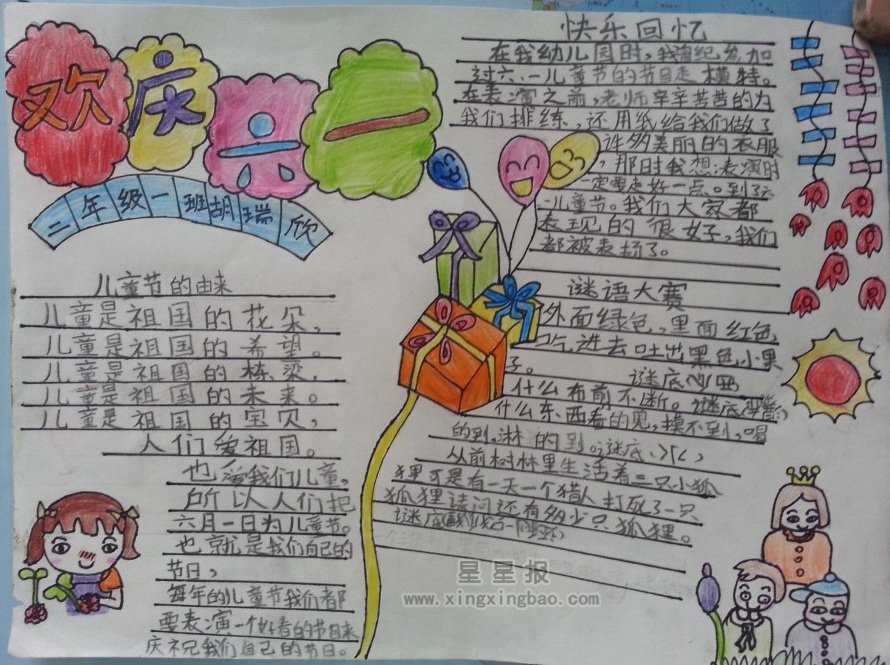 欢庆六一
二年级一班胡瑞欣
儿童节的由来
儿童是祖国的花朵,
儿童是祖国的希望。
儿童是祖国的栋梁,
儿童是祖国的未来。
儿童是祖国的宝贝,
人们爱祖国。
也爱我们儿童。
所以人们把
六月一日为儿童节。
也就是我们自己的
节日,
每年的儿童节我们者都
要表演一个好看的节目来
庆祝我们自己的节日。
快乐回忆
在我幼儿园时,我参加
过六.一儿童节的节目走模特。
在表演之前,老师辛辛苦苦的为
我们排练,还用纸给我们做了
许多美丽的衣服
,那时我想:表演时
一定要走好一点。到了六
一儿童节。我们大家都
表现的很好,我们
都被表扬了。
谜语大赛
外面绿色,里面红色
吃进去吐出黑色小果
子。谜底
什么布前不断。谜底
什么东西看的见,摸不到,喝
的到淋的到。谜底
从前树林里生活着三只小狐
狸可是有一天一个猎人打死了一只
狐狸请问还有多少只狐狸。
谜底
星星报
www.xingxingbao.com